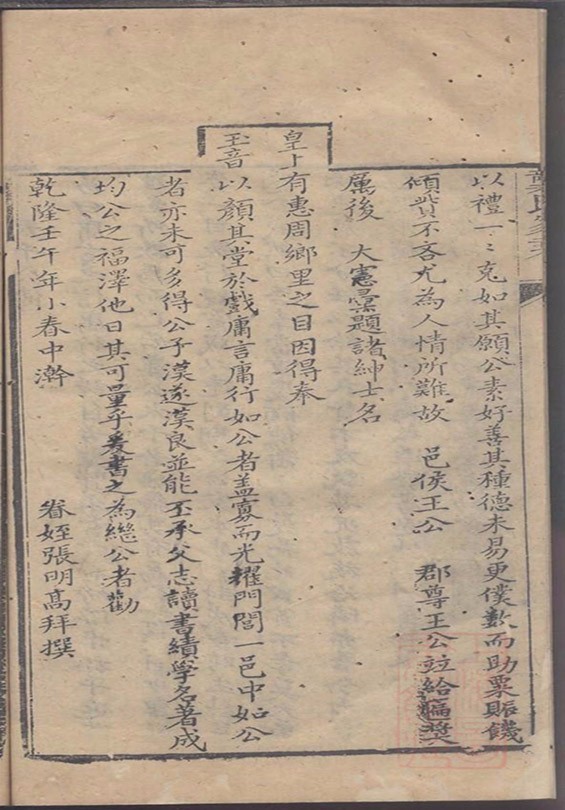 以禮一一克如其願公素好善其種德未易更僕數而助粟賑饑
傾貲不吝尤為人情所難故 邑侯王公 郡尊王公並給匾獎
厲後 大憲彙題諸紳士名
皇上有惠周鄉里之目因得奉
玉音以顏其堂於戲庸言庸行如公者盖寡而光耀門閭一邑中如公
者亦未可多得公子漢遂漢良並能丕承父志讀書績學名著成
均公之福澤他日其可量乎爰書之為繼公者勸
乾隆壬午年小春中澣 眷姪張明高拜撰